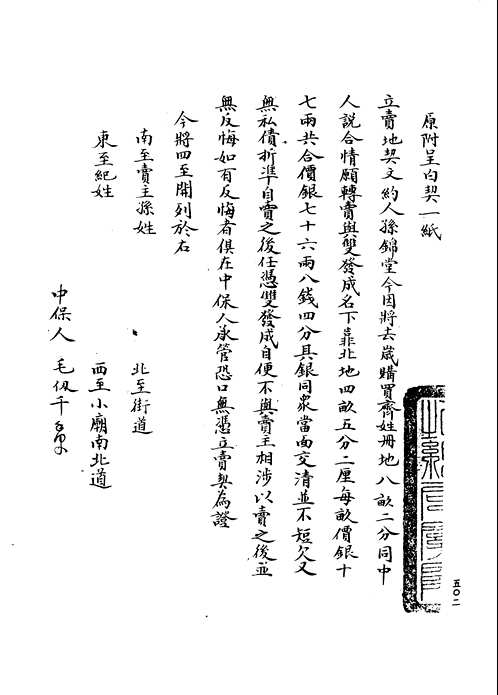 原附呈白契一紙
立賣地契文約人孫錦堂今因將去歲購買齊姓冊地八畝二分同中
人說合情願轉賣與雙發成名下靠北地四畝五分二厘每畝價銀十
七兩共合價銀七十六兩八錢四分具銀同衆當面交清並不短欠又
無私債折準自賣之後任憑雙發成自便不與賣主相涉以賣之後並
無反悔如有反悔者俱在中保人承管恐口無憑立賣契為證
今將四至開列於右
南至賣主孫姓 北至街道
東至紀姓 西至小廟南北道
中保人 毛仭千
五〇二